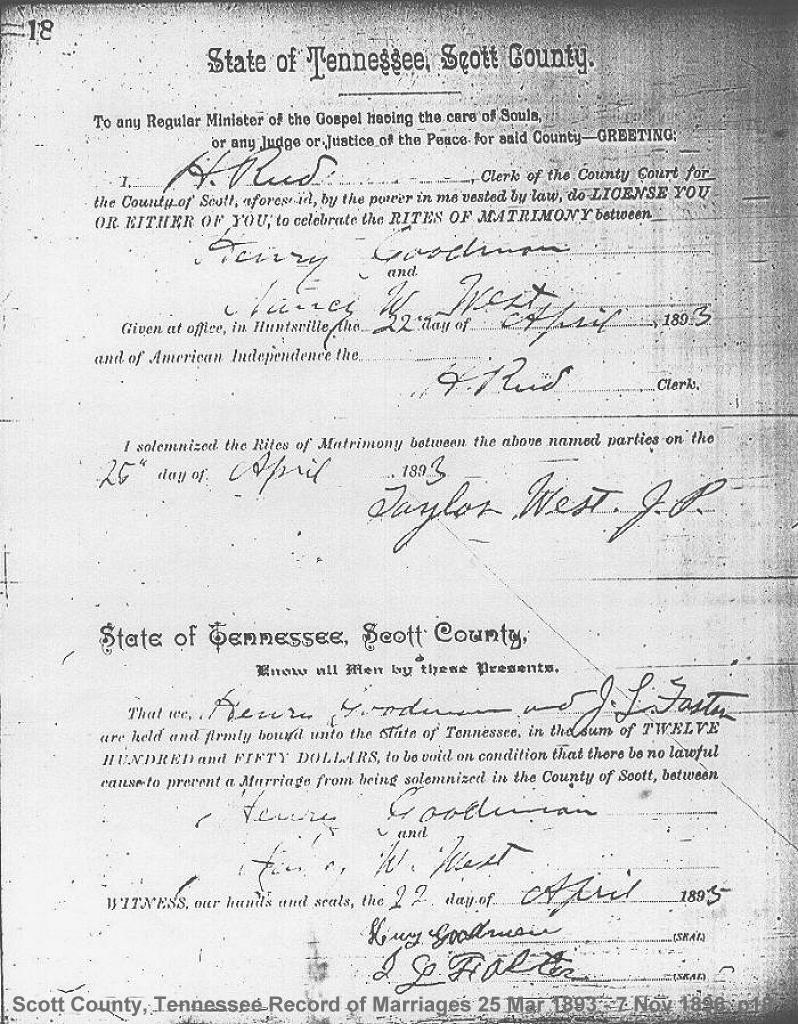 18
State of Tennessee, Scott County.
To any Regular Minister of the Gospel having the care of Souls,
or any Judge or Justice of the Peace for said County—GREETING:
I, H. Reed, Clerk of the County Court for
the County of Scott, aforesaid, by the power in me vested by law, do LICENSE YOU
OR EITHER OF YOU, to celebrate the RITES OF MATRIMONY between
Henry Goodman
and
Nancy W. West
Given at office, in Huntsville, the 22nd day of April, 1893
and of American Independence the
H. Reed Clerk.
I solemnized the Rites of Matrimony between the above named parties on the
25" day of April 1893
Taylor West. J. P.
State of Tennessee, Scott County,
Know all Men by these Presents.
That we, Henry Goodman and J. L. Foster
are held and firmly bound unto the State of Tennessee, in the sum of TWELVE
HUNDRED and FIFTY DOLLARS, to be void on condition that there be no lawful
cause to prevent a Marriage from being solemnized in the County of Scott, between
Henry Goodman
and
W. West
WITNESS, our hands and seals, the 22 day of April 1893
Henry Goodman (SEAL)
J L Foster (SEAL)
Scott County, Tennessee Record of Marriages 25 Mar 1893 - 7 Nov 1896, p18